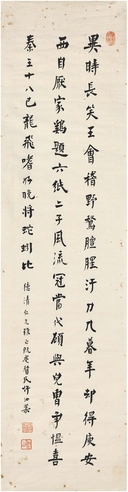 異時長笑王會稽野鶩膻腥汙刀几暮年却得庾安
西自厭家鷄題六紙二子風流冠當代顧與兒曹爭慍喜
秦王十八已龍飛嗜好晚將蛇蚓比
德清仁兄